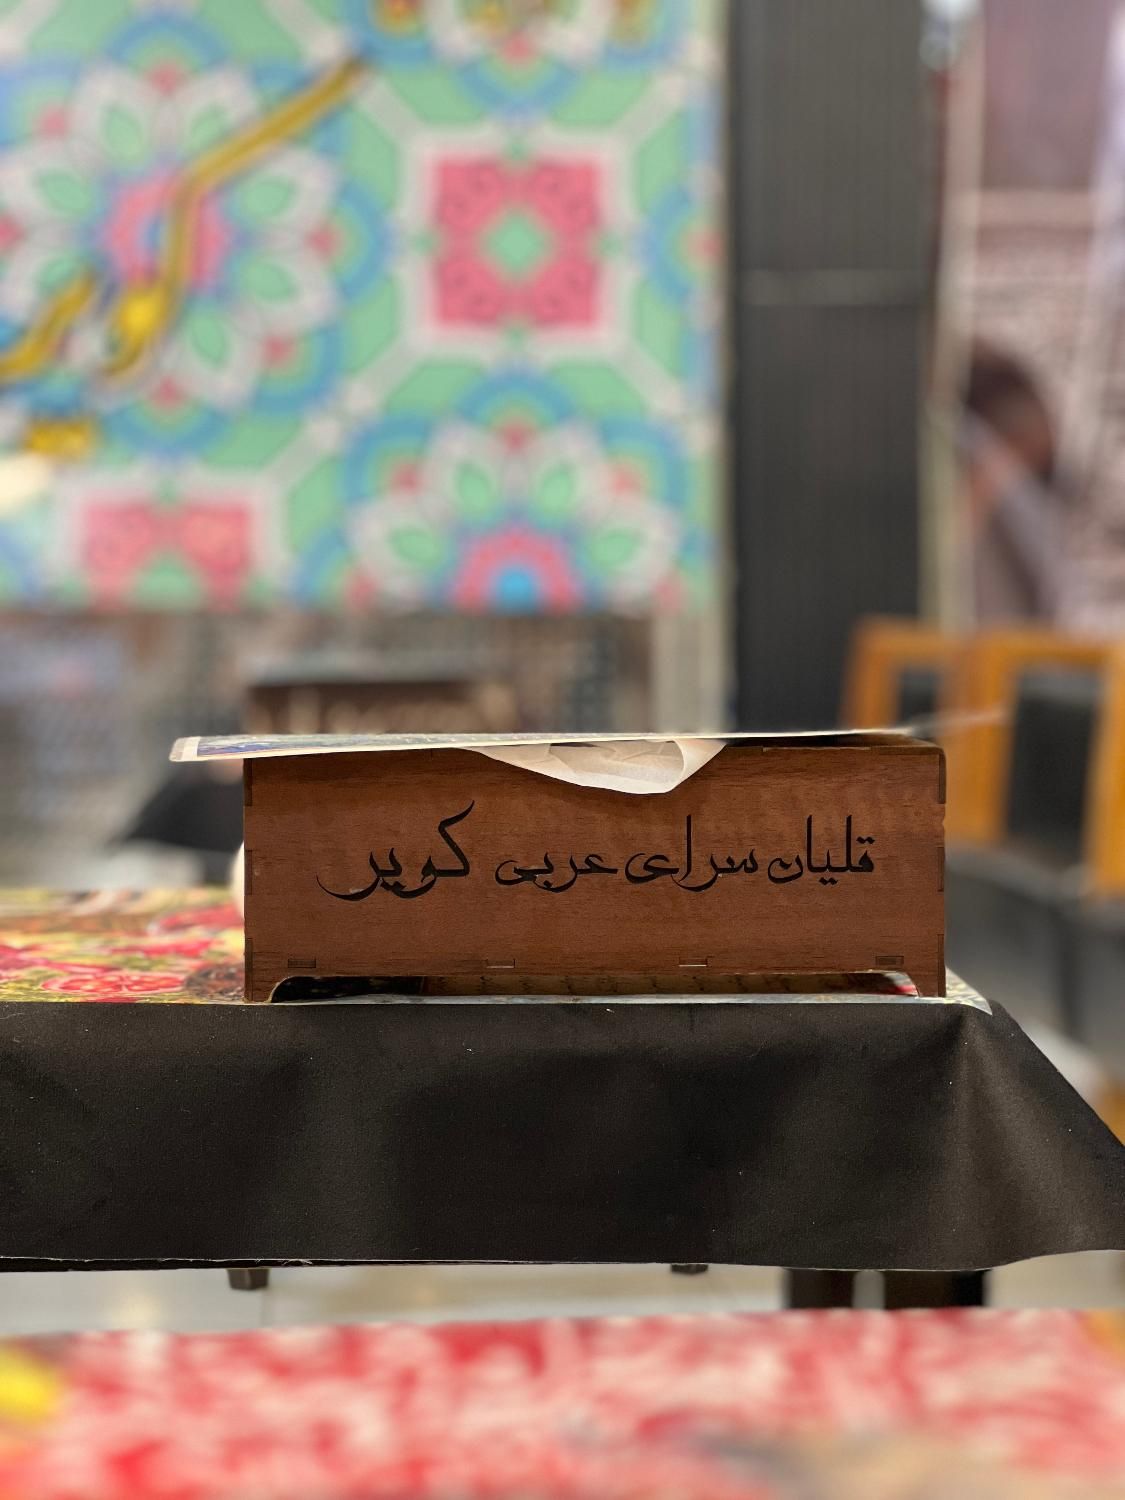 قلیان سرای عربی کویر